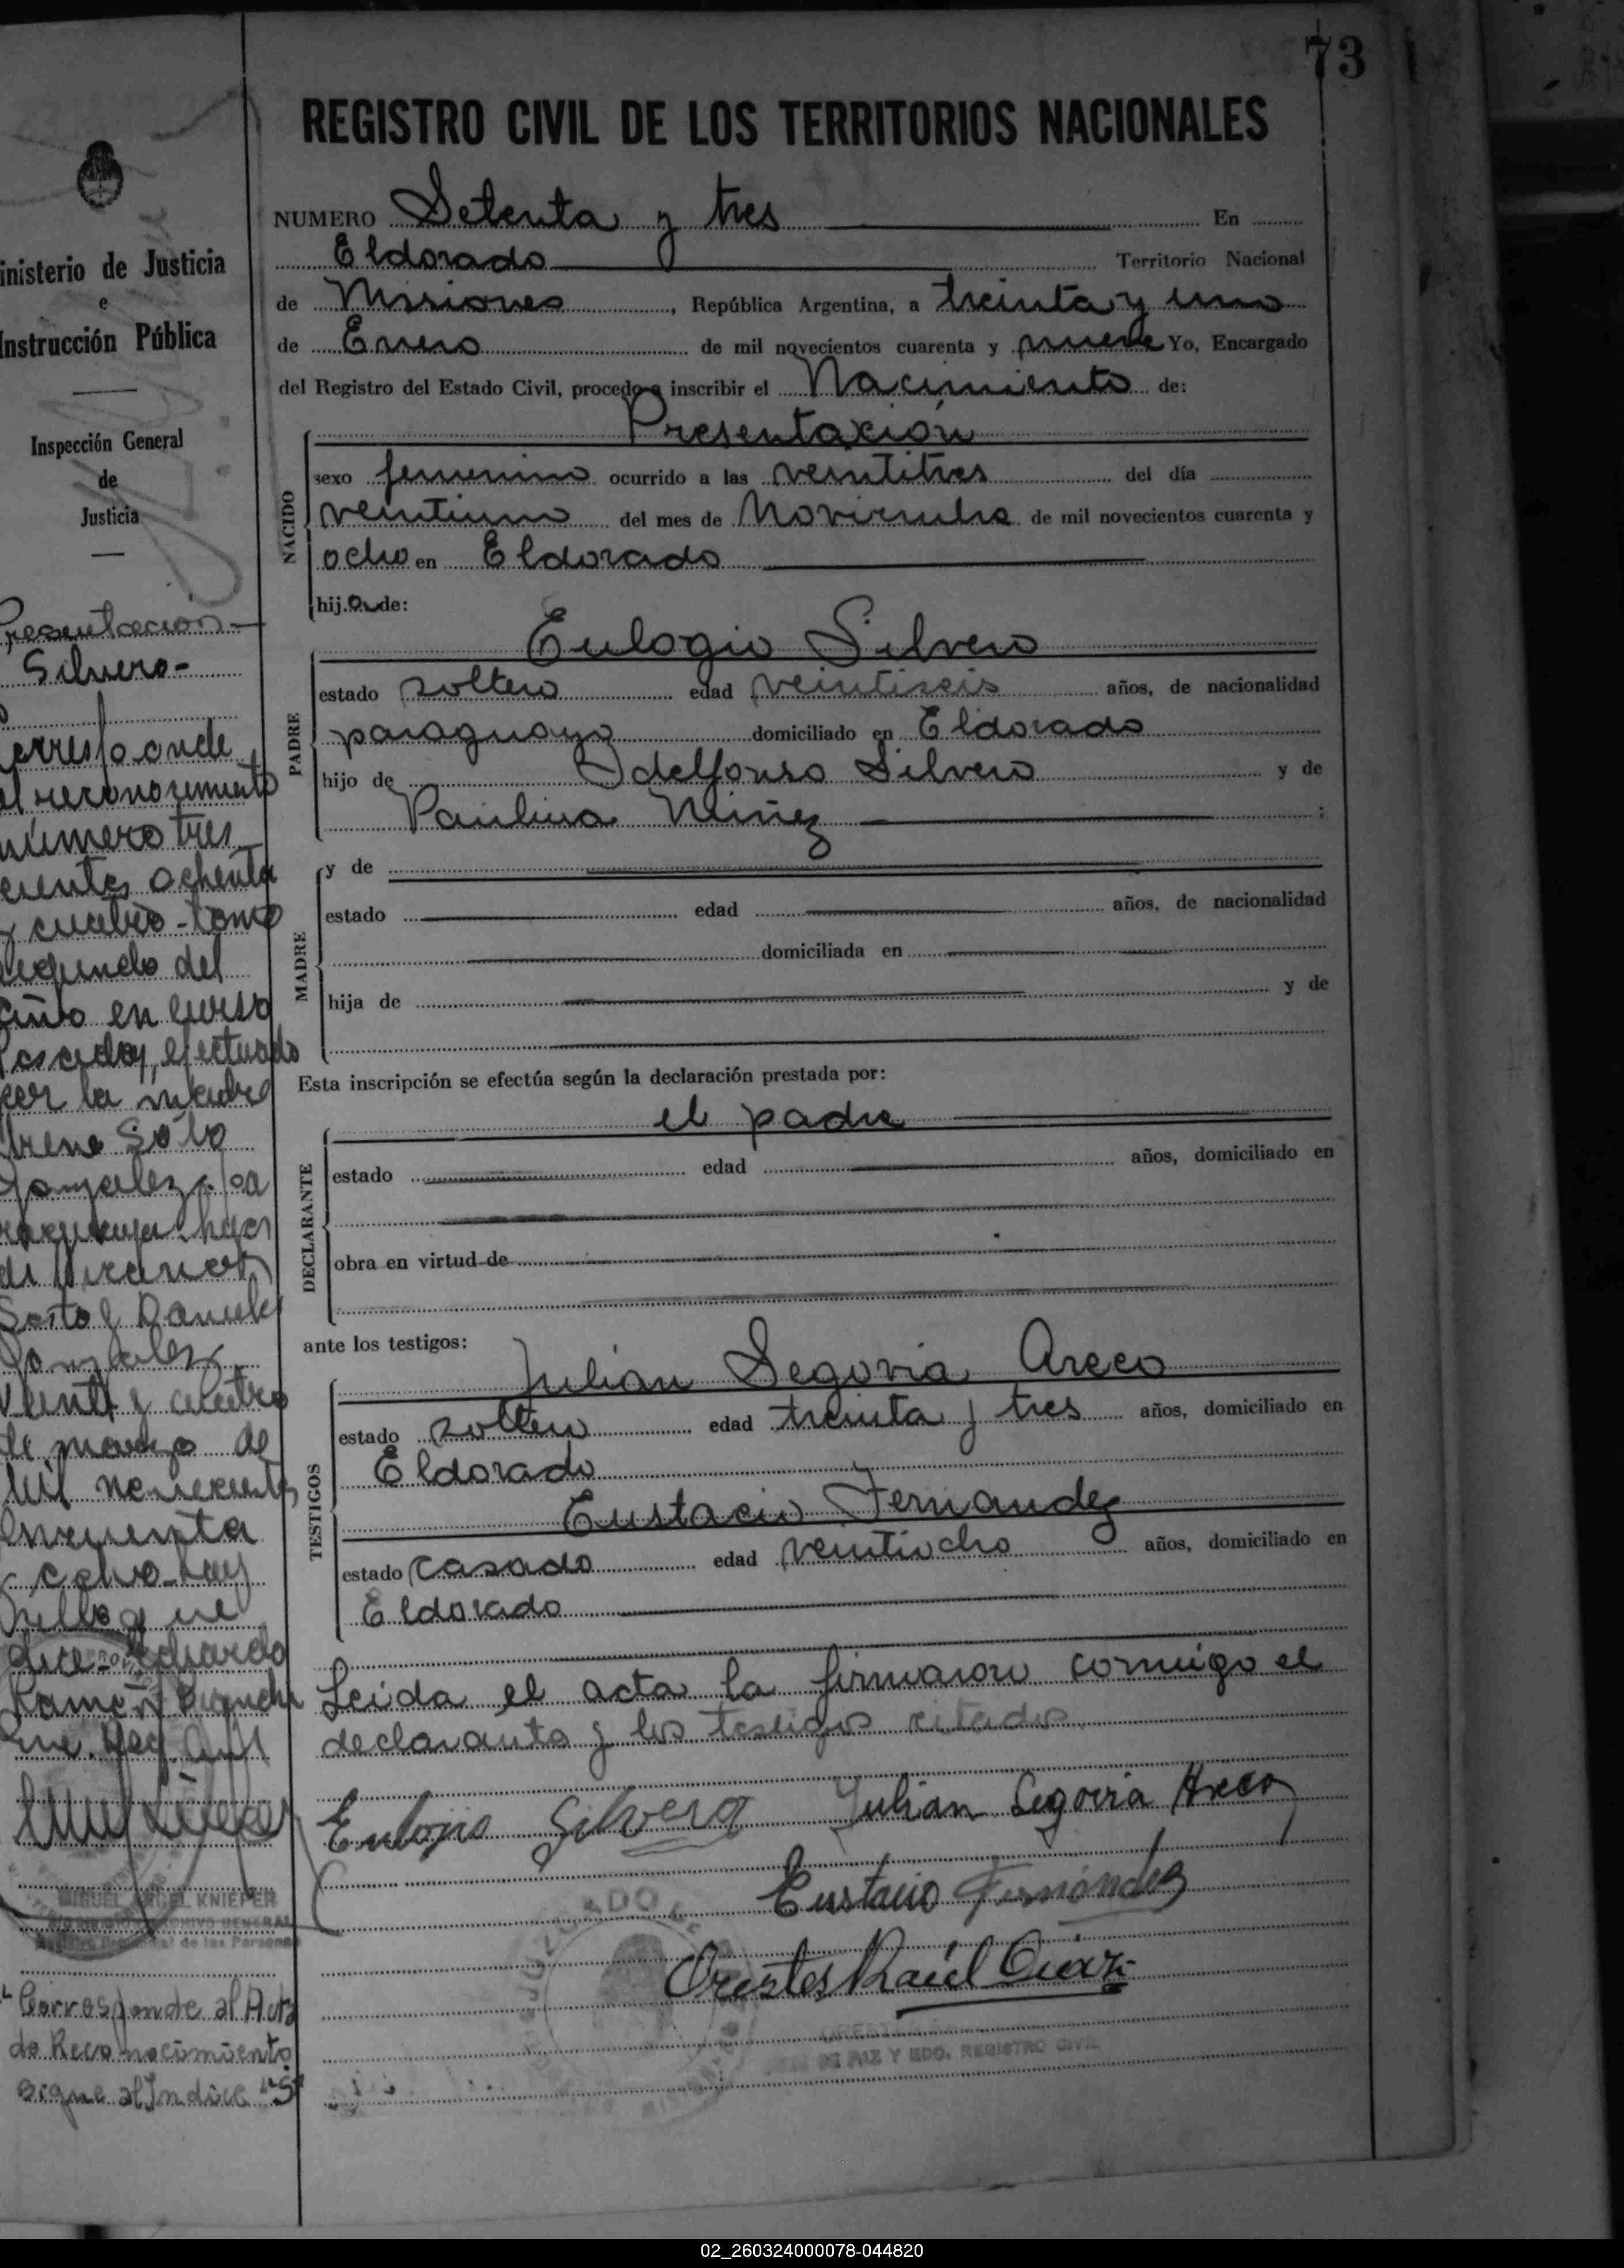 73
REGISTRO CIVIL DE LOS TERRITORIOS NACIONALES
NUMERO Setenta y tres En
Eldorado Territorio Nacional
de Misiones, República Argentina, a treinta y uno
de Enero de mil novecientos cuarenta y nueve Yo, Encargado
del Registro del Estado Civil, procedo a inscribir el Nacimiento de:
Presentación
NACIDO
sexo femenino ocurrido a las veintitres del día
veintiuno del mes de Noviembre de mil novecientos cuarenta y
ocho en Eldorado
hija de:
Eulogio Silvero
PADRE
estado soltero edad veintiseis años, de nacionalidad
paraguaya domiciliado en Eldorado
hijo de Idelfonso Silvero y de
Paulina Núñez ;
MADRE
y de
estado edad años, de nacionalidad
domiciliada en
hija de y de
Esta inscripción se efectúa según la declaración prestada por:
el padre
DECLARANTE
estado edad años, domiciliado en
obra en virtud de
ante los testigos:
Julián Segovia Areco
TESTIGOS
estado soltero edad treinta y tres años, domiciliado en
Eldorado
Eustacio Fernandez
estado casado edad veintiocho años, domiciliado en
Eldorado
Leida el acta la firmaron conmigo el
declarante y los testigos citados.
Eulojio Silvero Julian Segovia Areco
Eustacio Fernández
Orestes Raúl Diaz
DE PAZ Y EDO. REGISTRO CIVIL
inisterio de Justicia
e
Instrucción Pública
Inspección General
de
Justicia
Presentación
Silvero-
corresponde
al reconocimiento
número tres
cientos ochenta
y cuatro - tomo
segundo del
año en curso
efectuado
por la madre
Irene Soto
Gonzalez, pa
raguaya, hija
de
Soto y Daniela
Gonzalez
Veinte y cuatro
de marzo de
mil novecientos
cincuenta
hay
sello que
dice Eduardo
Ramón
MIGUEL ANGEL KNIEPER
ARCHIVO GENERAL
de las Personas
Corresponde al Acta
de Reconocimiento
sigue al Indice "S"
02_260324000078-044820